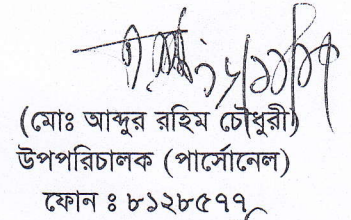 (মোঃ আব্দুর রহিম চৌধুরী)
উপপরিচালক (পার্সোনেল)
ফোন ঃ ৮১২৮৫৭৭